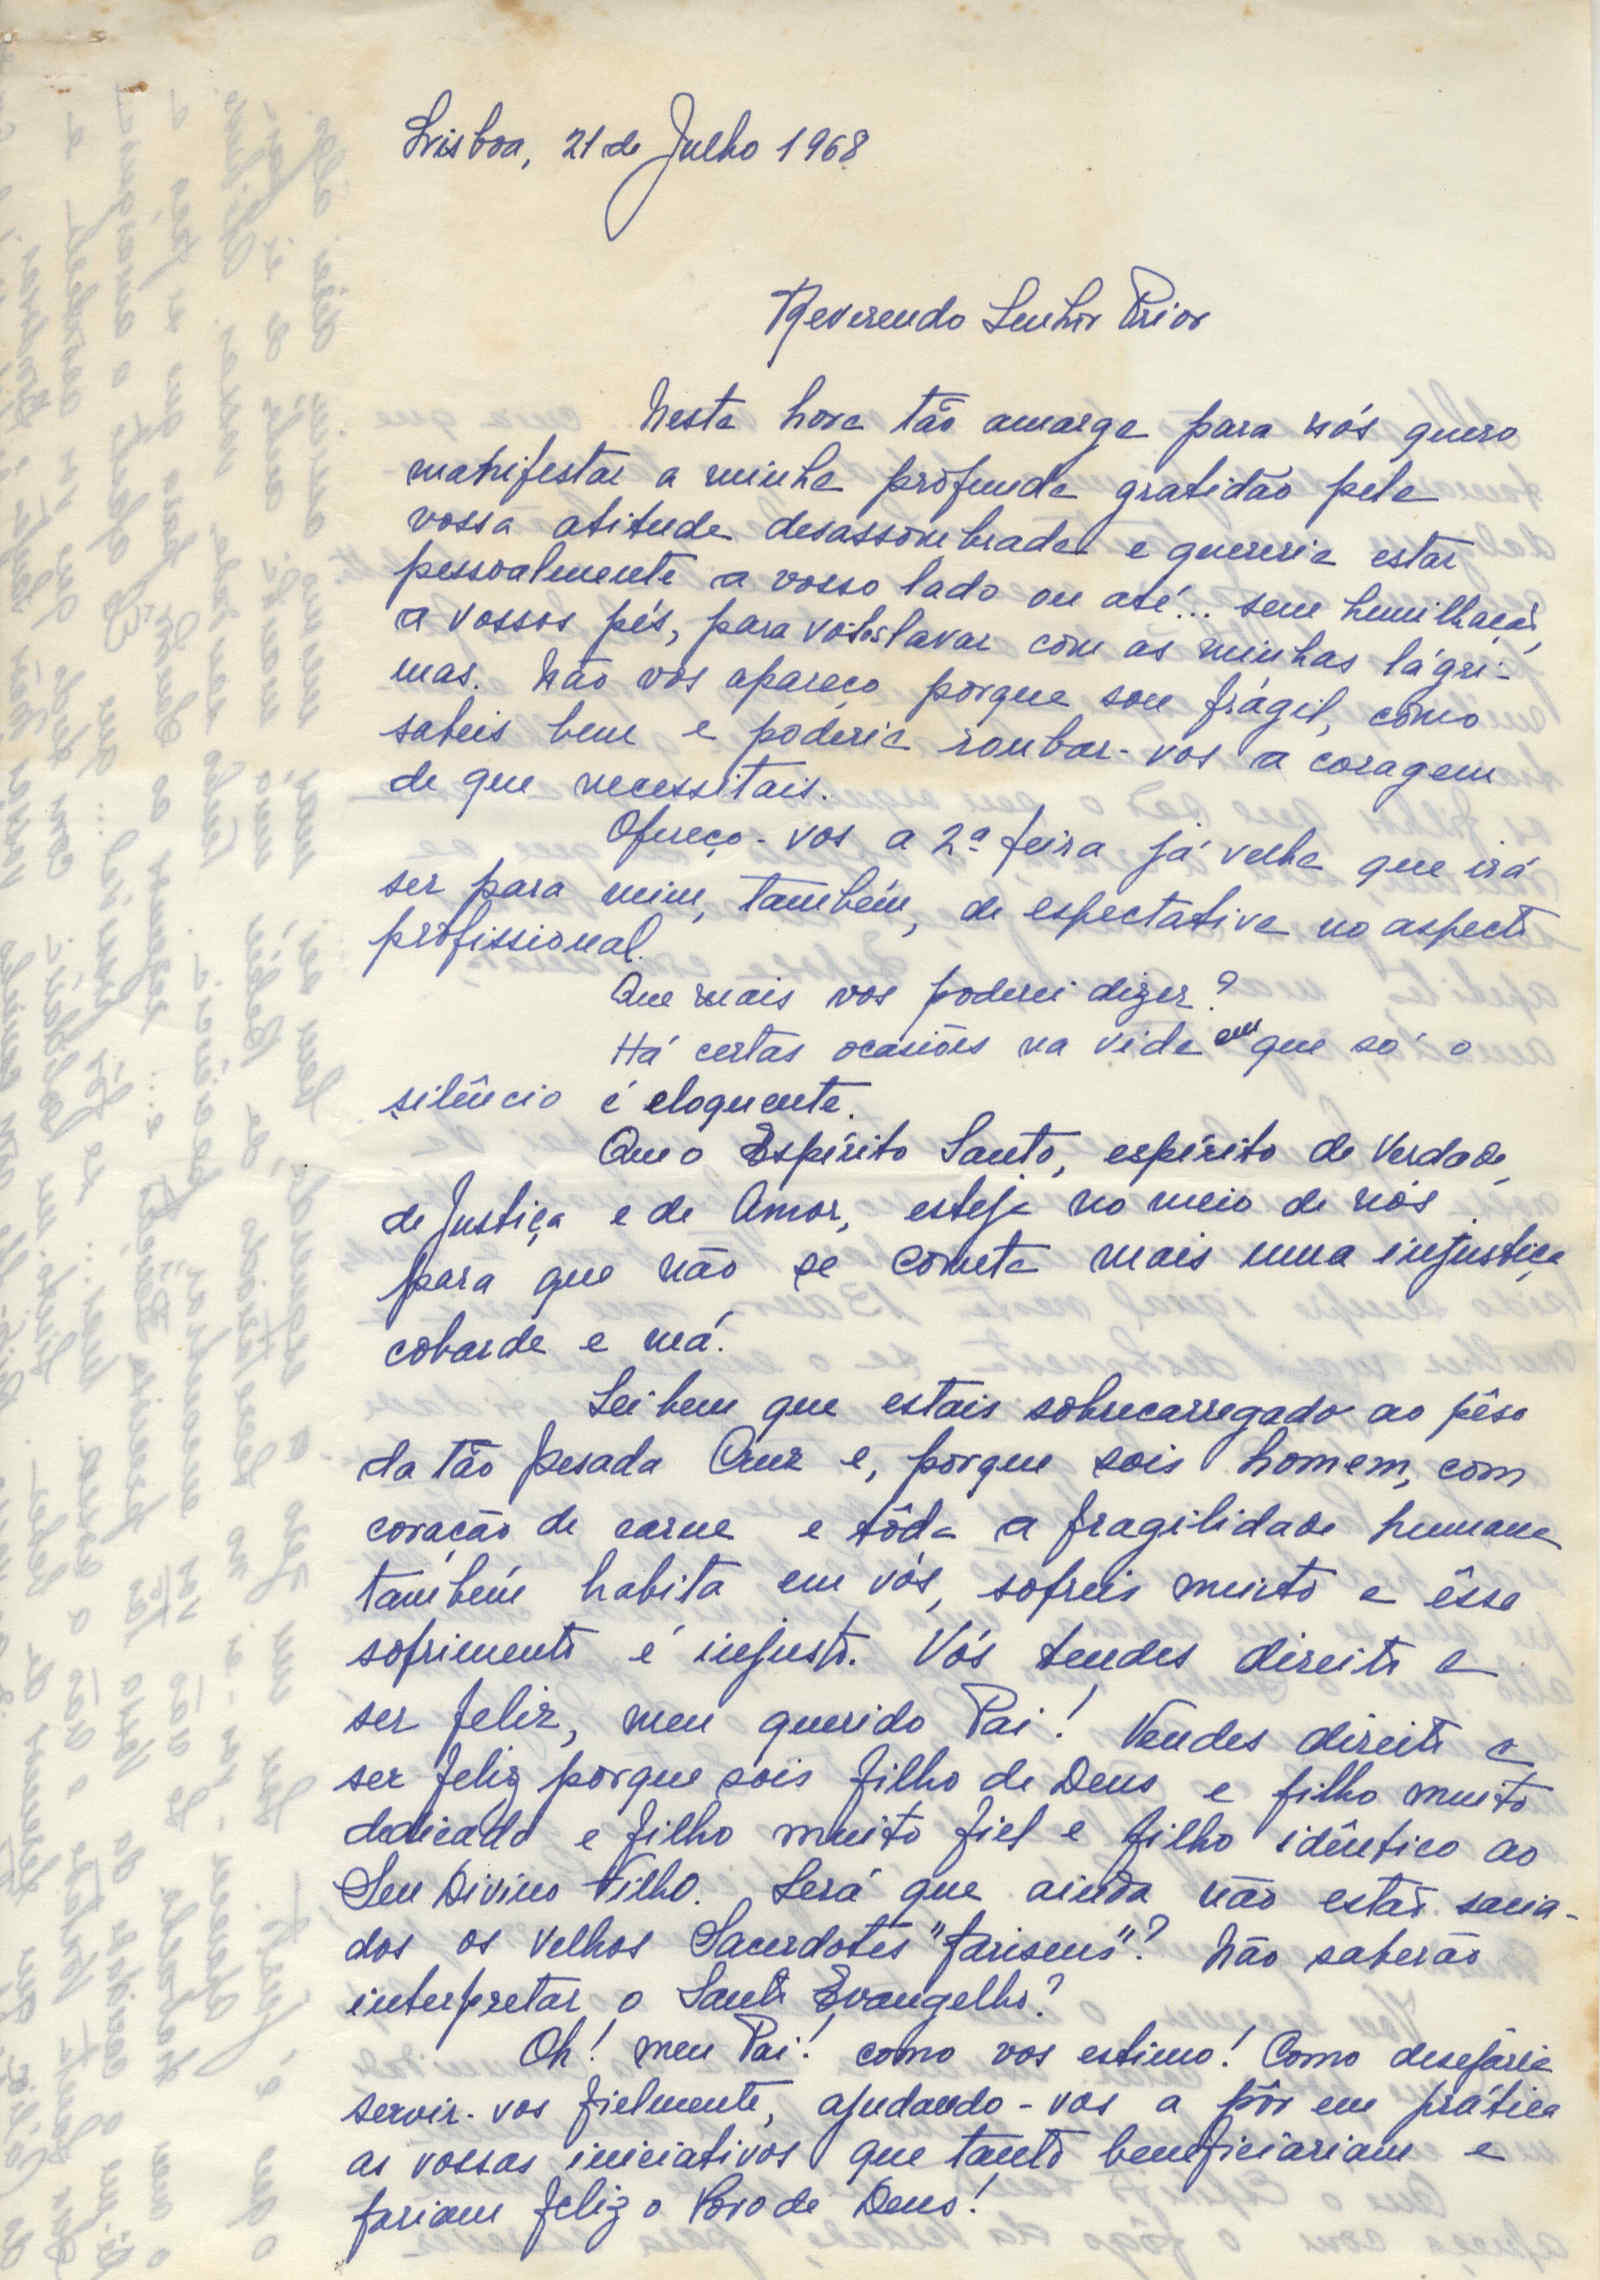 Lisboa, 21 de Julho 1968
Reverendo Senhor Prior
Nesta hora tão amarga para nós quero
manifestar a minha profunda gratidão pela
vossa atitude desassombrada e quereria estar
pessoalmente a vosso lado ou até... sem humilhação,
a vossos pés, para vo-los lavar com as minhas lágri-
mas. Não vos apareço porque sou frágil, como
sabeis bem e poderia roubar-vos a coragem
de que necessitais.
Ofereço-vos a 2ª feira já velha que irá
ser para mim, também, de espectativa no aspecto
profissional.
Que mais vos poderei dizer?
Há certas ocasiões na vida em que só o
silêncio é eloquente.
Que o Espírito Santo, espírito de Verdade,
de Justiça e de Amor, esteja no meio de nós
para que não se cometa mais uma injustiça
cobarde e má.
Sei bem que estais sobrecarregado ao pêso
da tão pesada Cruz e, porque sois homem, com
coração de carne e tôda a fragilidade humana
também habita em vós, sofreis muito e êsse
sofrimento é injusto. Vós tendes direito a
ser feliz, meu querido Pai! Tendes direito a
ser feliz porque sois filho de Deus e filho muito
dedicado e filho muito fiel e filho idêntico ao
Seu Divino Filho. Será que ainda não estão sacia-
dos os velhos Sacerdotes "fariseus"? Não saberão
interpretar o Santo Evangelho?
Oh! meu Pai! como vos estimo! Como desejaria
servir-vos fielmente, ajudando-vos a pôr em prática
as vossas iniciativas que tanto beneficiariam e
fariam feliz o Povo de Deus!